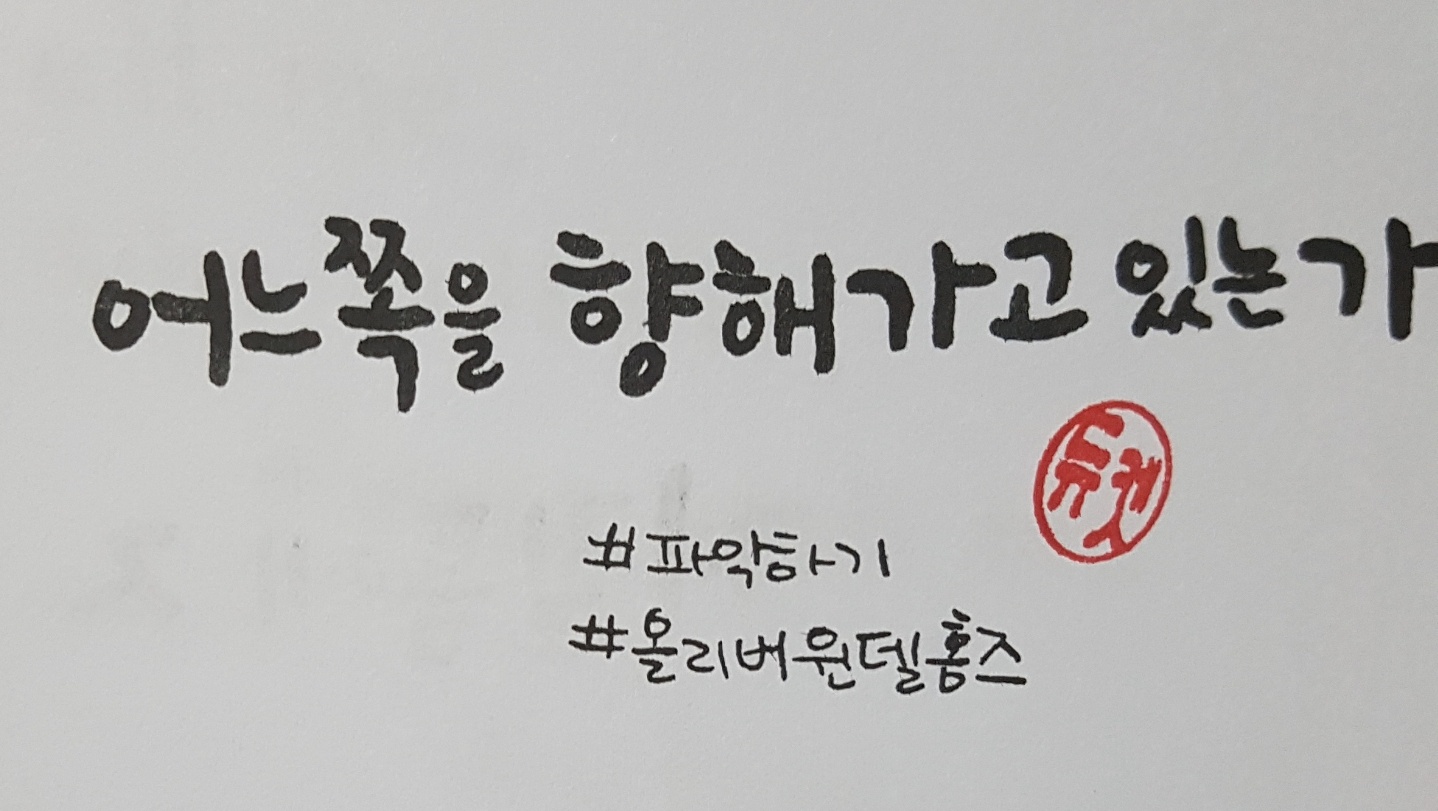 어느쪽을 향해가고 있는가
듀켓
#파악하기
#올리버웬델홈즈